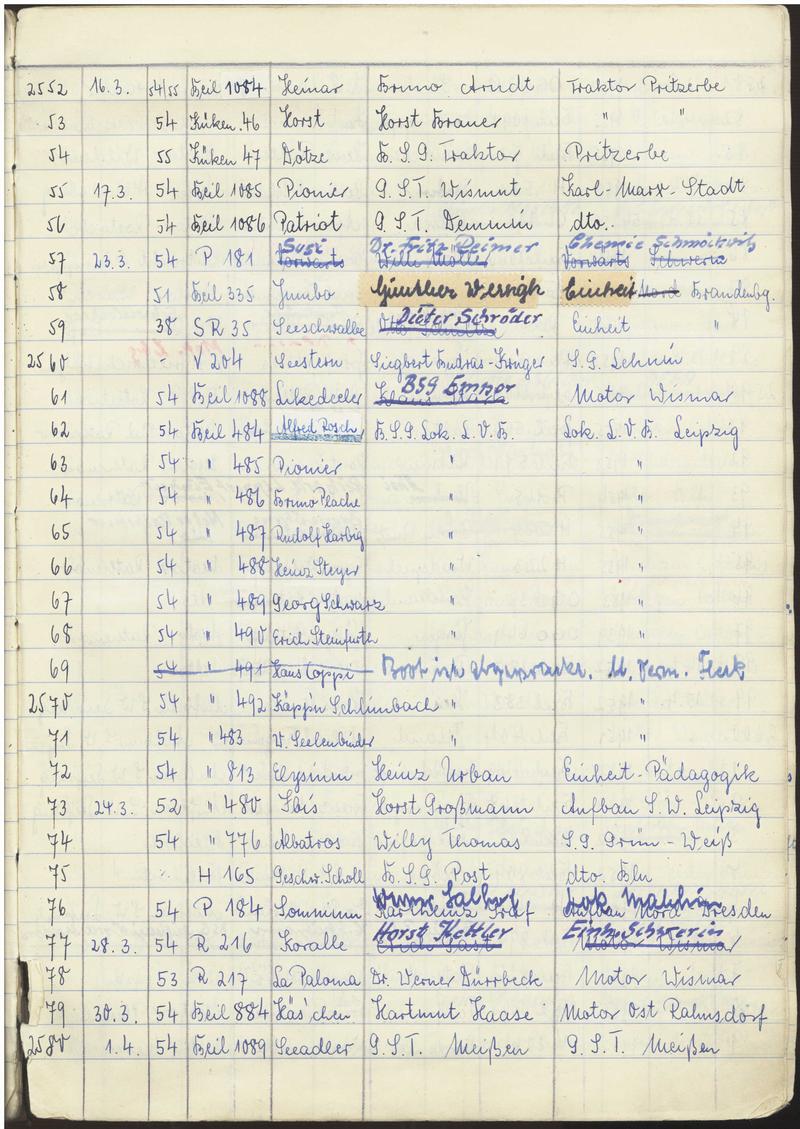 2552 16.3. 54/55 Beil 1084 Heinar Bruno Arndt Traktor Pritzerbe
53 54 Küken 46 Horst Horst Brauer " "
54 55 Küken 47 Dötze B.S.G. Traktor Pritzerbe
55 17.3. 54 Beil 1085 Pionier G.S.T. Wismut Karl-Marx-Stadt
56 54 Beil 1086 Patriot G.S.T. Demmin dto.
Susi Dr. Fritz Reimer Chemie Schmöckwitz
57 23.3. 54 P 181 Vorwärts Willi Möller Vorwärts Schwerin
58 51 Beil 335 Jumbo Günther Wernigk Einheit Nord Brandenbg.
Dieter Schröder
59 38 SR 35 Seeschwalbe Otto Einheit "
2560 - V 204 Seestern Siegbert Budras-Krüger S.G. Lehnin
BSG Empor
61 54 Beil 1088 Likedeeler Klaus Motor Wismar
62 54 Beil 484 Alfred Rosch B.S.G. Lok. L.V.B. Lok. L.V.B. Leipzig
63 54 " 485 Pionier " "
64 54 " 486 Bruno Plache " "
65 54 " 487 Rudolf Harbig " "
66 54 " 488 Heinz Steyer " "
67 54 " 489 Georg Schwarz " "
68 54 " 490 Erich Steinfurth " "
69 54 " 491 Hans Coppi Boot ist abgewrackt. lt. Verm. Fleck
2570 54 " 492 Käpp'n Schlimbach " "
71 54 " 483 W. Seelenbinder " "
72 54 " 813 Elysium Heinz Urban Einheit-Pädagogik
73 24.3. 52 " 480 Ibis Horst Großmann Aufbau S.W. Leipzig
74 54 " 776 Albatros Willy Thomas S.G. Grün-Weiß
75 H 165 Geschw. Scholl B.S.G. Post dto. Bln
Werner Lok
76 54 P 184 Sommium Karlheinz Graf Aufbau Nord Dresden
Horst Kettler Einh. Schwerin
77 28.3. 54 R 216 Koralle Erich Gast Motor Wismar
78 53 R 217 La Paloma Dr. Werner Dürrbeck Motor Wismar
79 30.3. 54 Beil 884 Häs'chen Hartmut Haase Motor Ost Rahnsdorf
2580 1.4. 54 Beil 1089 Seeadler G.S.T. Meißen G.S.T. Meißen